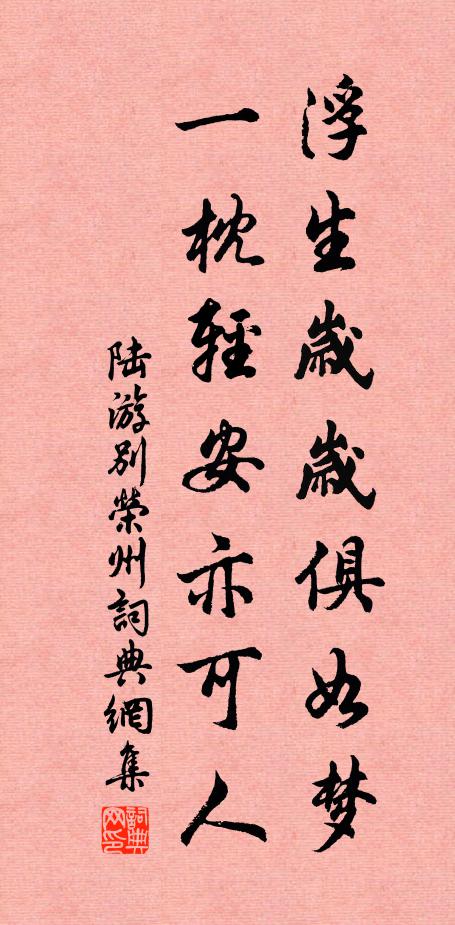 浮生歲歲俱如梦
一枕輕安亦可人
陆游别榮州詞典網集
詞典网印